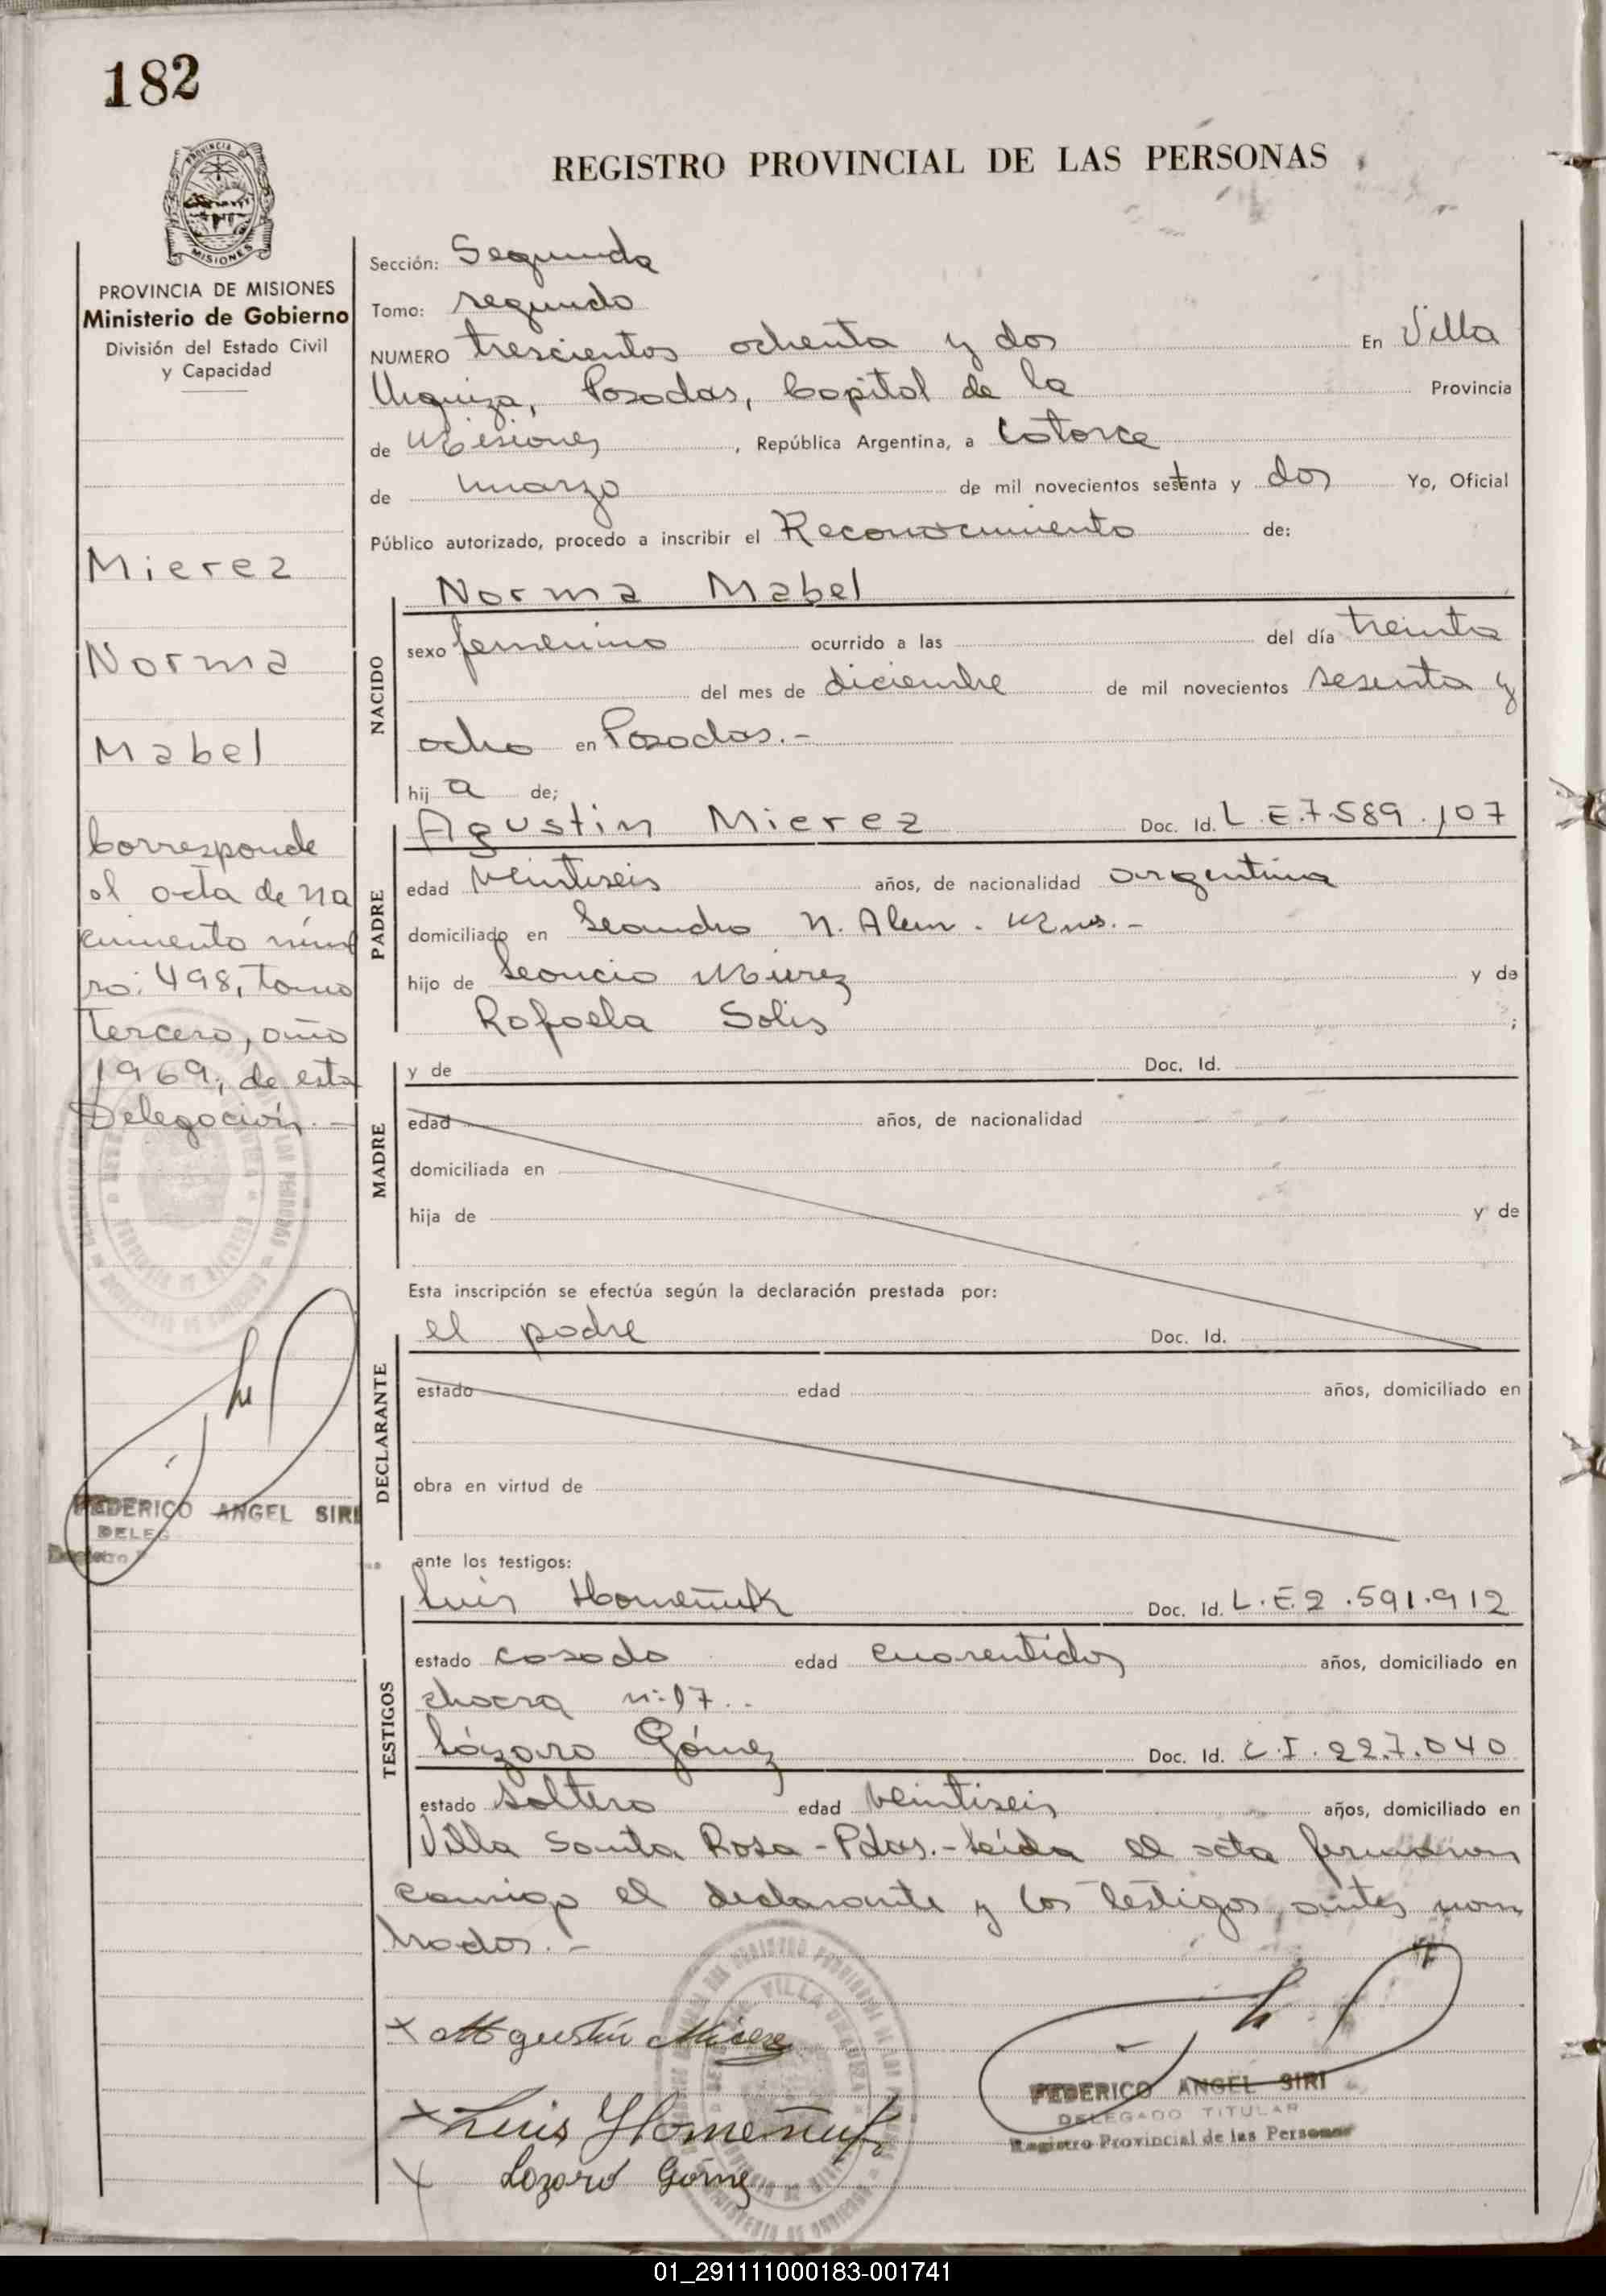 182
REGISTRO PROVINCIAL DE LAS PERSONAS
PROVINCIA DE
MISIONES
PROVINCIA DE MISIONES
Ministerio de Gobierno
División del Estado Civil
y Capacidad
Mierez
Norma
Mabel
Corresponde
al acta de na
cimiento núme
ro: 498, tomo
tercero, año
1969, de esta
Delegación.-
FEDERICO ANGEL SIRI
DELEG
Sección: Segunda
Tomo: segundo
NUMERO trescientos ochenta y dos En Villa
Urquiza, Posadas, Capital de la Provincia
de Misiones, República Argentina, a catorce
de marzo de mil novecientos setenta y dos Yo, Oficial
Público autorizado, procedo a inscribir el Reconocimiento de:
NACIDO
Norma Mabel
sexo femenino ocurrido a las del día treinta
del mes de diciembre de mil novecientos sesenta y
ocho en Posadas.-
hija de;
PADRE
Agustin Mierez Doc. Id. L.E.7.589.107
edad veintiseis años, de nacionalidad argentina
domiciliado en Leandro N. Alem. Mnes.-
hijo de Leoncio Mierez y de
Rafaela Solis ;
MADRE
y de Doc. Id.
edad años, de nacionalidad
domiciliada en
hija de y de
Esta inscripción se efectúa según la declaración prestada por:
DECLARANTE
el padre Doc. Id.
estado edad años, domiciliado en
obra en virtud de
ante los testigos:
TESTIGOS
Luis Homeñuk Doc. Id. L.E.2.591.912
estado casado edad cuarentidos años, domiciliado en
chacra nº 17..
Lázaro Gómez Doc. Id. C.I. 227.040
estado soltero edad veintiseis años, domiciliado en
Villa Santa Rosa-Pdas.-Leída el acta firmaron
conmigo el declarante y los testigos antes nom
brados.-
x Agustin Mierez
x Luis Homeñuk
x Lozaro Gómez
FEDERICO ANGEL SIRI
DELEGADO TITULAR
Registro Provincial de las Personas
01_291111000183-001741